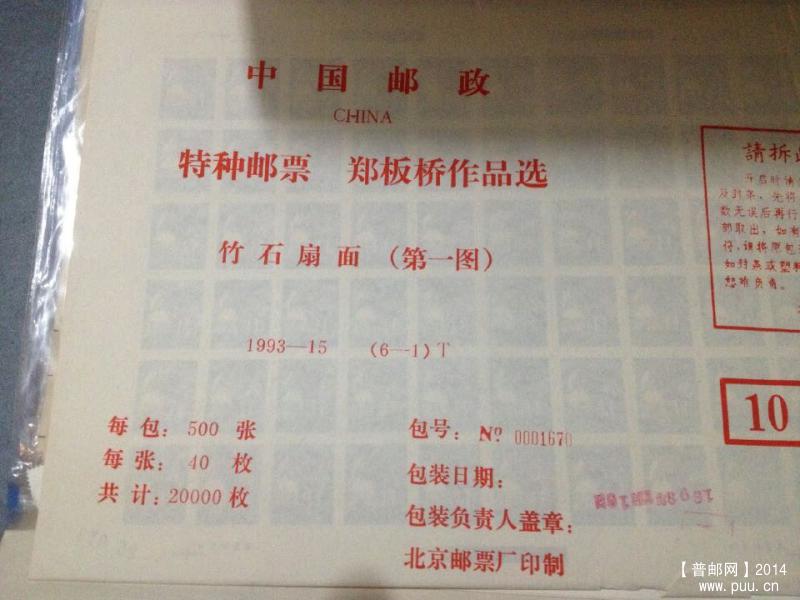 中国邮政
CHINA
特种邮票 郑板桥作品选
竹石扇面（第一图）
1993—15 （6—1）T
每包：500 张
每张：40 枚
共计：20000枚
包号：Nº 0001670
包装日期：
包装负责人盖章：
北京邮票厂印制
請拆
开启时请
及封条，先将
数无误后再行
部取出，如有
符，请将原包
如封条或塑料
恕难负责。
10
【普邮网】2014
www.puu.cn